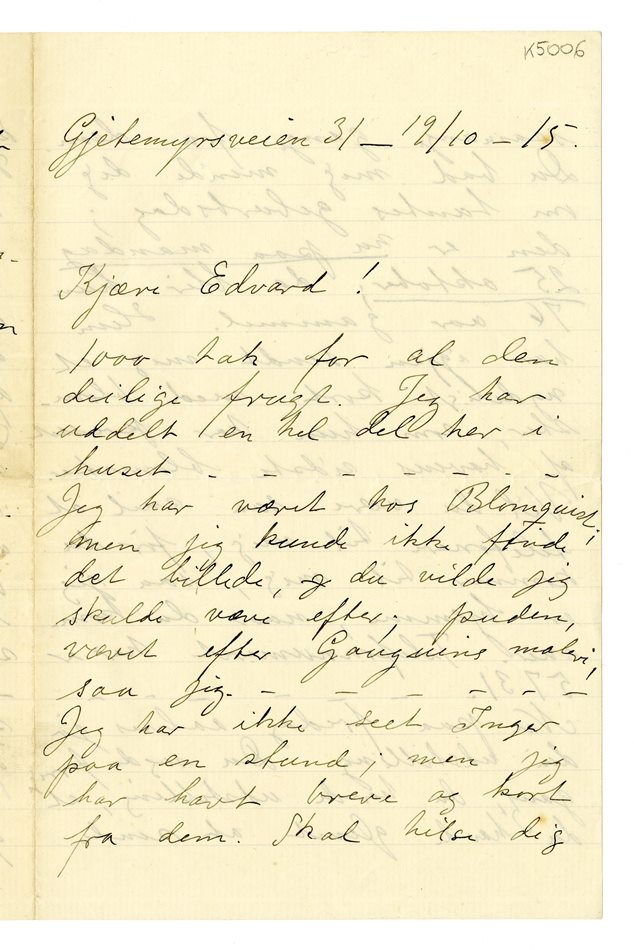 K5006
Gjetemyrsveien 31 – 19/10 – 15.
Kjære Edvard !
1000 tak for al den
deilige frugt. Jeg har
uddelt en hel del her i
huset – – – – – – –
Jeg har været hos Blomquist,
men jeg kunde ikke finde
det billede, du vilde jeg
skulde væve efter; puden,
vævet efter Gauguins maleri,
saa jeg. – – – – – –
Jeg har ikke seet Inger
paa en stund; men jeg
har havt breve og kort
fra dem. Skal hilse dig